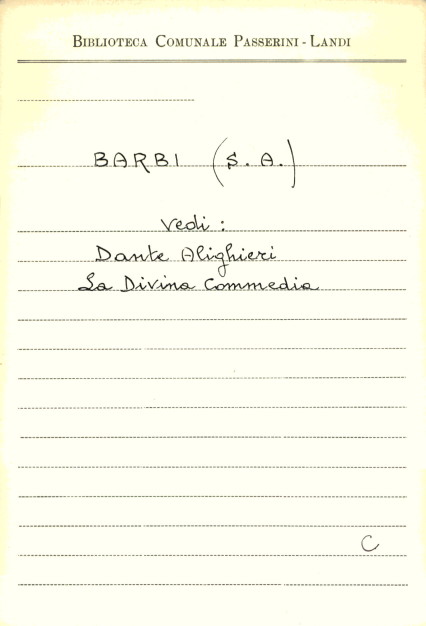 BIBLIOTECA COMUNALE PASSERINI - LANDI
BARBI (S. A.)
Vedi :
Dante Alighieri
La Divina Commedia
C